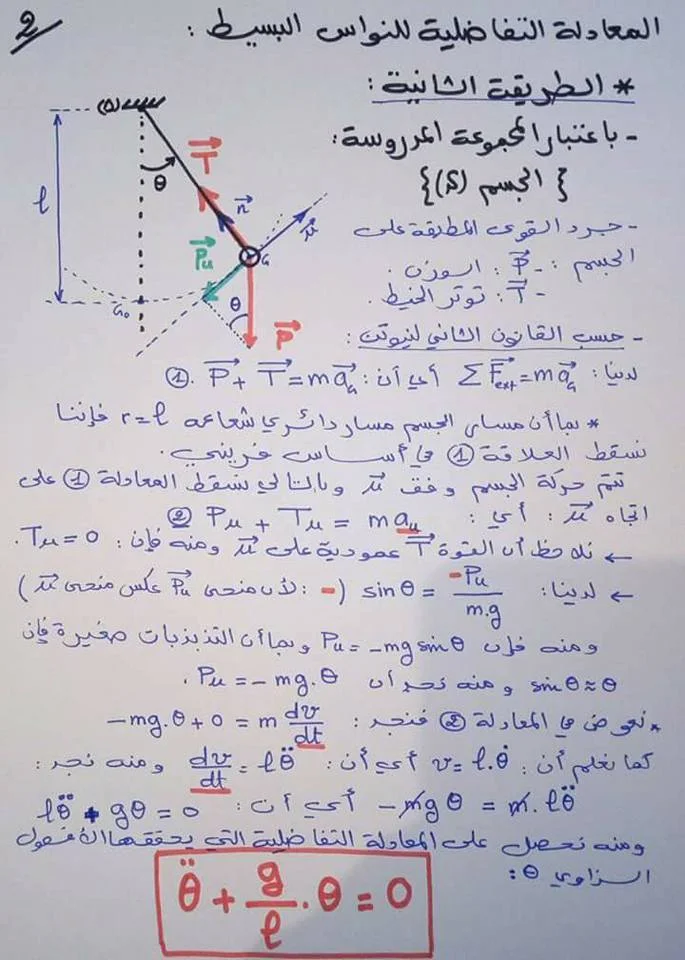 2/
المعادلة التفاضلية للنواس البسيط :
* الطريقة الثانية :
- باعتبار المجموعة المدروسة :
{ الجسم (S) }
(Δ)
θ
T
n
u
l
Pu
G
θ
G₀
P
- جرد القوى المطبقة على
الجسم : - P : الوزن .
- T : توتر الخيط .
- حسب القانون الثاني لنيوتن :
لدينا : Σ Fext = m aG أي أن : P + T = m aG . ①
* بما أن مسار الجسم مسار دائري شعاعه r = l فإننا
نسقط العلاقة ① في أساس فريني .
تتم حركة الجسم وفق u وبالتالي نسقط المعادلة ① على
اتجاه u : أي : Pu + Tu = m au ②
← نلاحظ أن القوة T عمودية على u ومنه فإن : Tu = 0 .
← لدينا : sinθ = -Pu / m.g ( - : لأن منحى Pu عكس منحى u )
ومنه فإن Pu = -mg sinθ وبما أن التذبذبات صغيرة فإن
sinθ ≈ θ ومنه نجد أن Pu = -mg.θ .
* نعوض في المعادلة ② فنجد : -mg.θ + 0 = m dv/dt
كما نعلم أن : v = l.θ̇ أي أن : dv/dt = lθ̈ ومنه نجد :
-mgθ = m.lθ̈ أي أن : lθ̈ + gθ = 0
ومنه نحصل على المعادلة التفاضلية التي يحققها الأفصول
الزاوي θ :
θ̈ + g/l . θ = 0